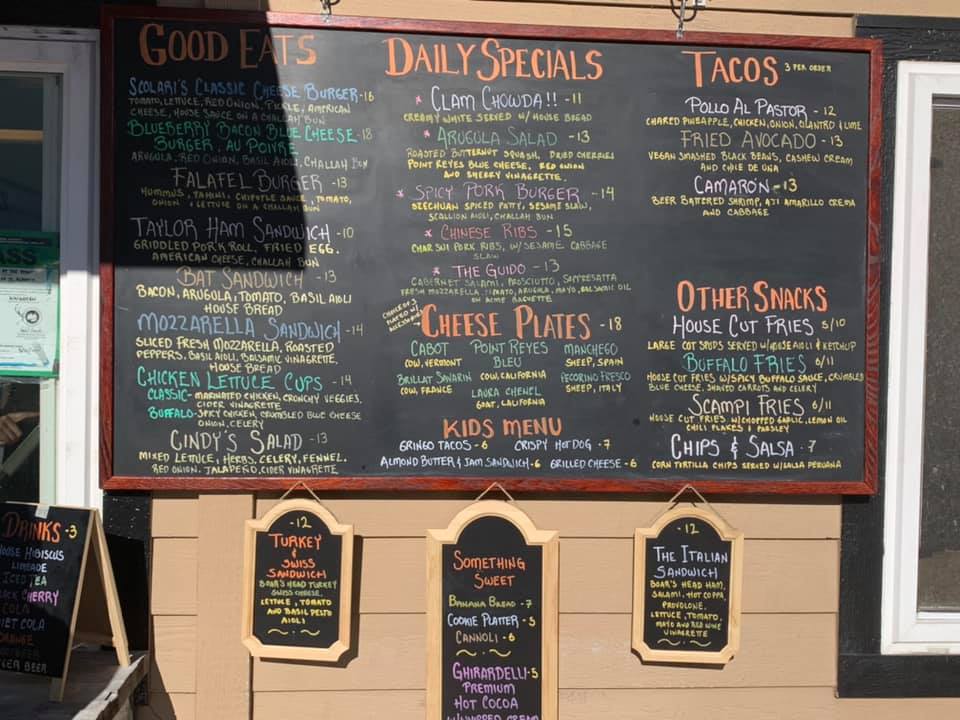 GOOD EATS
SCOLARI'S CLASSIC CHEESE BURGER -16
TOMATO, LETTUCE, RED ONION, PICKLE, AMERICAN
CHEESE, HOUSE SAUCE ON A CHALLAH BUN
BLUEBERRY BACON BLUE CHEESE -18
BURGER, AU POIVRE
ARUGULA, RED ONION, BASIL AIOLI, CHALLAH BUN
FALAFEL BURGER -13
HUMMUS, TAHINI, CHIPOTLE SAUCE, TOMATO,
ONION & LETTUCE ON A CHALLAH BUN
TAYLOR HAM SANDWICH -10
GRIDDLED PORK ROLL, FRIED EGG,
AMERICAN CHEESE, CHALLAH BUN
BAT SANDWICH -13
BACON, ARUGULA, TOMATO, BASIL AIOLI
HOUSE BREAD
MOZZARELLA SANDWICH -14
SLICED FRESH MOZZARELLA, ROASTED
PEPPERS, BASIL AIOLI, BALSAMIC VINAGRETTE,
HOUSE BREAD
CHICKEN LETTUCE CUPS -14
CLASSIC- MARINATED CHICKEN, CRUNCHY VEGGIES,
CIDER VINAGRETTE
BUFFALO- SPICY CHICKEN, CRUMBLED BLUE CHEESE
ONION, CELERY
CINDY'S SALAD -13
MIXED LETTUCE, HERBS, CELERY, FENNEL,
RED ONION, JALAPEÑO, CIDER VINAGRETTE
DAILY SPECIALS
* CLAM CHOWDA!! -11
CREAMY WHITE SERVED W/ HOUSE BREAD
* ARUGULA SALAD -13
ROASTED BUTTERNUT SQUASH, DRIED CHERRIES
POINT REYES BLUE CHEESE, RED ONION
AND SHERRY VINAGRETTE
* SPICY PORK BURGER -14
SZECHUAN SPICED PATTY, SESAME SLAW,
SCALLION AIOLI, CHALLAH BUN
* CHINESE RIBS -15
CHAR SUI PORK RIBS, W/ SESAME CABBAGE
SLAW
* THE GUIDO -13
CABERNET SALAMI, PROSCIUTTO, SOPRESSATA
FRESH MOZZARELLA, TOMATO, ARUGULA, MAYO, BALSAMIC, OIL
ON ACME BAGUETTE
CHEESE PLATES -18
CABOT
COW, VERMONT
POINT REYES
BLEU
COW, CALIFORNIA
MANCHEGO
SHEEP, SPAIN
BRILLAT SAVARIN
COW, FRANCE
LAURA CHENEL
GOAT, CALIFORNIA
PECORINO FRESCO
SHEEP, ITALY
KIDS MENU
GRINGO TACOS -6 CRISPY HOT DOG -7
ALMOND BUTTER & JAM SANDWICH -6 GRILLED CHEESE -6
TACOS 3 PER ORDER
POLLO AL PASTOR -12
CHARED PINEAPPLE, CHICKEN, ONION, CILANTRO & LIME
FRIED AVOCADO -13
VEGAN SMASHED BLACK BEANS, CASHEW CREAM
AND CHILE DE UNA
CAMARÓN -13
BEER BATTERED SHRIMP, AJI AMARILLO CREMA
AND CABBAGE
OTHER SNACKS
HOUSE CUT FRIES 5/10
LARGE CUT SPUDS SERVED W/ HOUSE AIOLI & KETCHUP
BUFFALO FRIES 6/11
HOUSE CUT FRIES W/ SPICY BUFFALO SAUCE, CRUMBLED
BLUE CHEESE, SHAVED CARROTS AND CELERY
SCAMPI FRIES 6/11
HOUSE CUT FRIES W/ CHOPPED GARLIC, LEMON OIL
CHILI FLAKES & PARSLEY
CHIPS & SALSA -7
CORN TORTILLA CHIPS SERVED W/ SALSA PERUANA
DRINKS -3
HOUSE HIBISCUS
LIMEADE
ICED TEA
BLACK CHERRY
COLA
DIET COLA
ORANGE
ROOTBEER
GINGER BEER
-12
TURKEY
&
SWISS
SANDWICH
BOAR'S HEAD TURKEY
SWISS CHEESE,
LETTUCE, TOMATO
AND BASIL PESTO
AIOLI
SOMETHING
SWEET
BANANA BREAD -7
COOKIE PLATTER -5
CANNOLI -6
GHIRARDELLI -5
PREMIUM
HOT COCOA
W/WHIPPED CREAM
-12
THE ITALIAN
SANDWICH
BOAR'S HEAD HAM,
SALAMI, HOT COPPA,
PROVOLONE,
LETTUCE, TOMATO,
MAYO AND RED WINE
VINAGRETTE